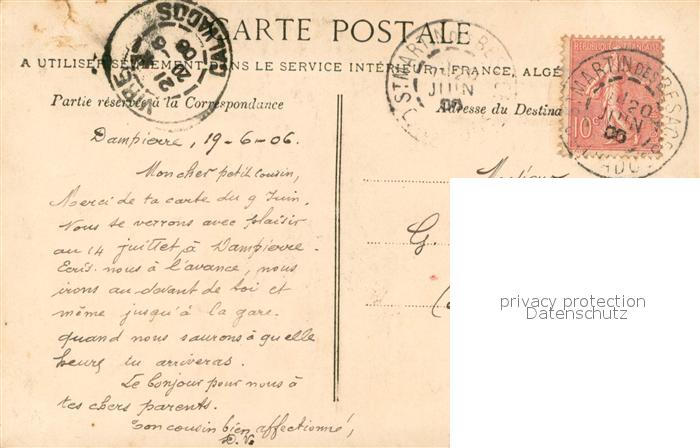 CARTE POSTALE
A UTILISER SEULEMENT DANS LE SERVICE INTÉRIEUR (FRANCE, ALGÉ
Partie réservée à la Correspondance
Adresse du Destina
Dampierre, 19-6-06.
Mon cher petit cousin,
Merci de ta carte du 9 Juin.
Nous te verrons avec plaisir
au 14 juillet, à Dampierre.
Ecris-nous à l'avance, nous
irons au-devant de toi et
même jusqu'à la gare.
quand nous saurons à quelle
heure tu arriveras.
Le bonjour pour nous à
tes chers parents.
Ton cousin bien affectionné,
G.
VIRE
CALVADOS
ST MARTIN DES BESACES
20
JUIN
06
RÉPUBLIQUE FRANÇAISE
10c
ST MARTIN DES BESACES
20
JUIN
06
privacy protection
Datenschutz